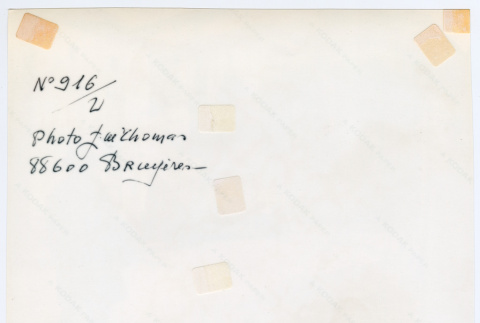 N° 916/2
Photo J-M Thomas
88600 BRuyères